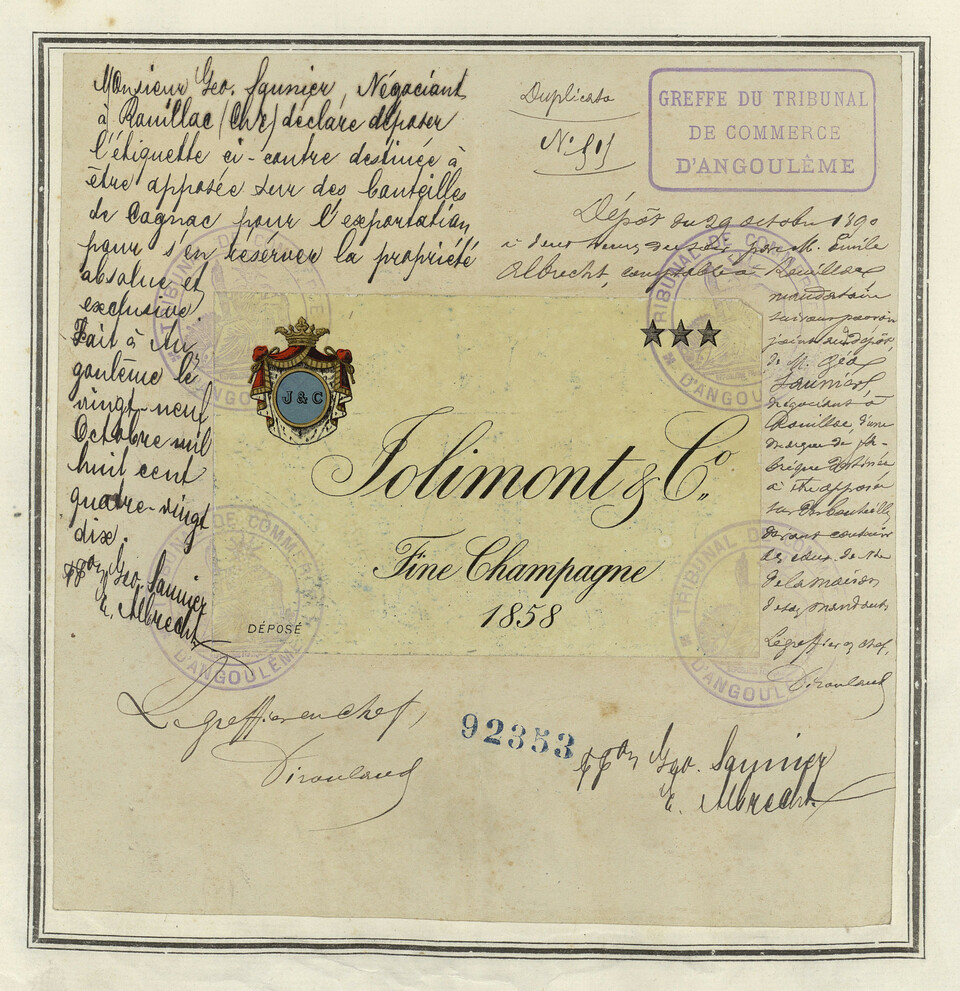 Monsieur Geo. Saunier, Négociant
à Rouillac (Chte) déclare déposer
l'étiquette ci-contre destinée à
être apposée sur des bouteilles
de Cognac pour l'exportation
pour s'en réserver la propriété
absolue et
exclusive.
Fait à An
goulême le
vingt-neuf
Octobre mil
huit cent
quatre-vingt
dix.
ppon Geo. Saunier
E. Albrecht
Duplicata
GREFFE DU TRIBUNAL
DE COMMERCE
D'ANGOULÊME
Dépôt du 29 octobre 1890
à deux heures du soir par M. Émile
Albrecht, comptable à Rouillac
mandataire
suivant pouvoir
joint au dépôt,
de M. Géo
Saunier
négociant à
Rouillac, d'une
marque de fa-
brique destinée
à être apposée
sur des bouteilles
devant contenir
des eaux-de-vie
de la maison
de son mandant
Le greffier en chef,
J & C
★★★
Jolimont & Co.
Fine Champagne
1858
DÉPOSÉ
TRIBUNAL DE COMMERCE D'ANGOULÊME
TRIBUNAL DE COMMERCE D'ANGOULÊME
TRIBUNAL DE COMMERCE D'ANGOULÊME
TRIBUNAL DE COMMERCE D'ANGOULÊME
Le greffier en chef,
92353
ppon Geo. Saunier
E. Albrecht